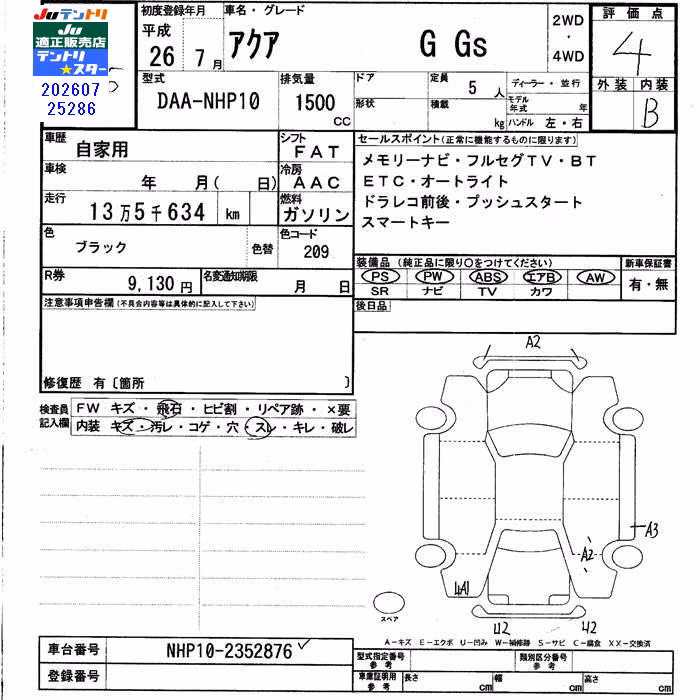 Juテントリ
Ju
適正販売店
テントリ
★スター
202607
25286
初度登録年月
平成
26年
7月
車名・グレード
アクア
G Gs
2WD
・
4WD
評価点
4
外装
内装
B
型式
DAA-NHP10
排気量
1500
CC
ドア
形状
定員
5人
積載
kg
ディーラー・並行
モデル年式
年
ハンドル
左・右
車歴
自家用
シフト
FAT
車検
年 月( 日)
冷房
AAC
走行
13万5千634 km
燃料
ガソリン
色
ブラック
色替
色コード
209
R券
9,130円
名変通知期限
月 日
セールスポイント(正常に機能するものに限ります)
メモリーナビ・フルセグTV・BT
ETC・オートライト
ドラレコ前後・プッシュスタート
スマートキー
装備品(純正品に限り○をつけてください)
PS PW ABS エアB AW
SR ナビ TV カワ
新車保証書
有・無
後日品
注意事項申告欄(不具合内容等は具体的に記入して下さい)
修復歴 有〔箇所 〕
検査員
記入欄
FW キズ・飛石・ヒビ割・リペア跡・×要
内装 キズ・汚レ・コゲ・穴・スレ・キレ・破レ
A2
A3
A2
4A1
U2
42
スペア
A-キズ E-エクボ U-凹み W-補修跡 S-サビ C-腐食 XX-交換済
車台番号
NHP10-2352876
登録番号
型式指定番号
参考
類別区分番号
参考
車庫証明用
参考
長さ
cm
幅
cm
高さ
cm